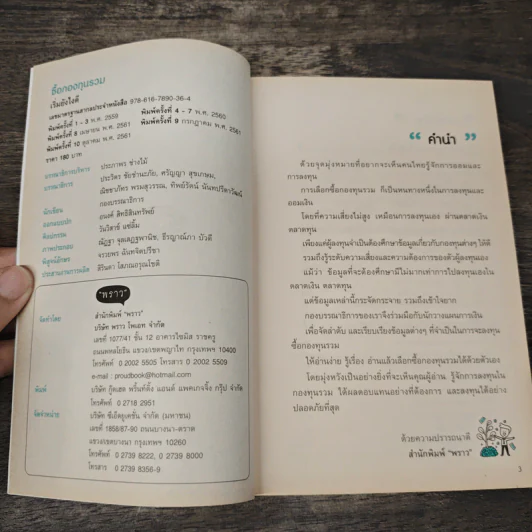 ซื้อกองทุนรวม
เริ่มยังไงดี
เลขมาตรฐานสากลประจำหนังสือ 978-616-7890-36-4
พิมพ์ครั้งที่ 1 - 3 พ.ศ. 2559 พิมพ์ครั้งที่ 4 - 7 พ.ศ. 2560
พิมพ์ครั้งที่ 8 เมษายน พ.ศ. 2561 พิมพ์ครั้งที่ 9 กรกฎาคม พ.ศ. 2561
พิมพ์ครั้งที่ 10 ตุลาคม พ.ศ. 2561
ราคา 180 บาท
บรรณาธิการบริหาร ประภาพร ช่างไม้
บรรณาธิการ
กองบรรณาธิการ
นักเขียน อนงค์ สิทธิสินทรัพย์
ออกแบบปก
ศิลปกรรม
ภาพประกอบ
พิสูจน์อักษร
ประสานงานการผลิต
"พราว"
จัดทำโดย สำนักพิมพ์ "พราว"
บริษัท พราว โพเอท จำกัด
เลขที่ 1077/41 ชั้น 12 อาคารไซมิส ราชครู
ถนนพหลโยธิน แขวง/เขตพญาไท กรุงเทพฯ 10400
โทรศัพท์ 0 2002 5505 โทรสาร 0 2002 5509
e-mail : proudbook@hotmail.com
พิมพ์ บริษัท กู๊ดเฮด พริ้นท์ติ้ง แอนด์ แพคเกจจิ้ง กรุ๊ป จำกัด
โทรศัพท์ 0 2718 2951
จัดจำหน่าย บริษัท ซีเอ็ดยูเคชั่น จำกัด (มหาชน)
เลขที่ 1858/87-90 ถนนบางนา-ตราด
แขวง/เขตบางนา กรุงเทพฯ 10260
โทรศัพท์ 0 2739 8222, 0 2739 8000
โทรสาร 0 2739 8356-9
“ คำนำ ”
ด้วยจุดมุ่งหมายที่อยากจะเห็นคนไทยรู้จักการออมและ
การลงทุน
การเลือกซื้อกองทุนรวม ก็เป็นหนทางหนึ่งในการลงทุนและ
ออมเงิน
โดยที่ความเสี่ยงไม่สูง เหมือนการลงทุนเอง ผ่านตลาดเงิน
ตลาดทุน
เพียงแต่ผู้ลงทุนจำเป็นต้องศึกษาข้อมูลเกี่ยวกับกองทุนต่างๆ ให้ดี
รวมถึงรู้ระดับความเสี่ยงและความต้องการของตัวผู้ลงทุนเอง
แม้ว่า ข้อมูลที่จะต้องศึกษามีไม่มากเท่าการไปลงทุนเองใน
ตลาดเงิน ตลาดทุน
แต่ข้อมูลเหล่านี้กระจัดกระจาย รวมถึงเข้าใจยาก
กองบรรณาธิการของเราจึงร่วมมือกับนักวางแผนทางการเงิน
เพื่อจัดลำดับ และเรียบเรียงข้อมูลต่างๆ ที่จำเป็นในการจะลงทุน
ซื้อกองทุนรวม
ให้อ่านง่าย รู้เรื่อง อ่านแล้วเลือกซื้อกองทุนรวมได้ด้วยตัวเอง
โดยมุ่งหวังเป็นอย่างยิ่งที่จะเห็นคุณผู้อ่าน รู้จักการลงทุนใน
กองทุนรวม ได้ผลตอบแทนอย่างที่ต้องการ และลงทุนได้อย่าง
ปลอดภัยที่สุด
ด้วยความปรารถนาดี
สำนักพิมพ์ "พราว"
3